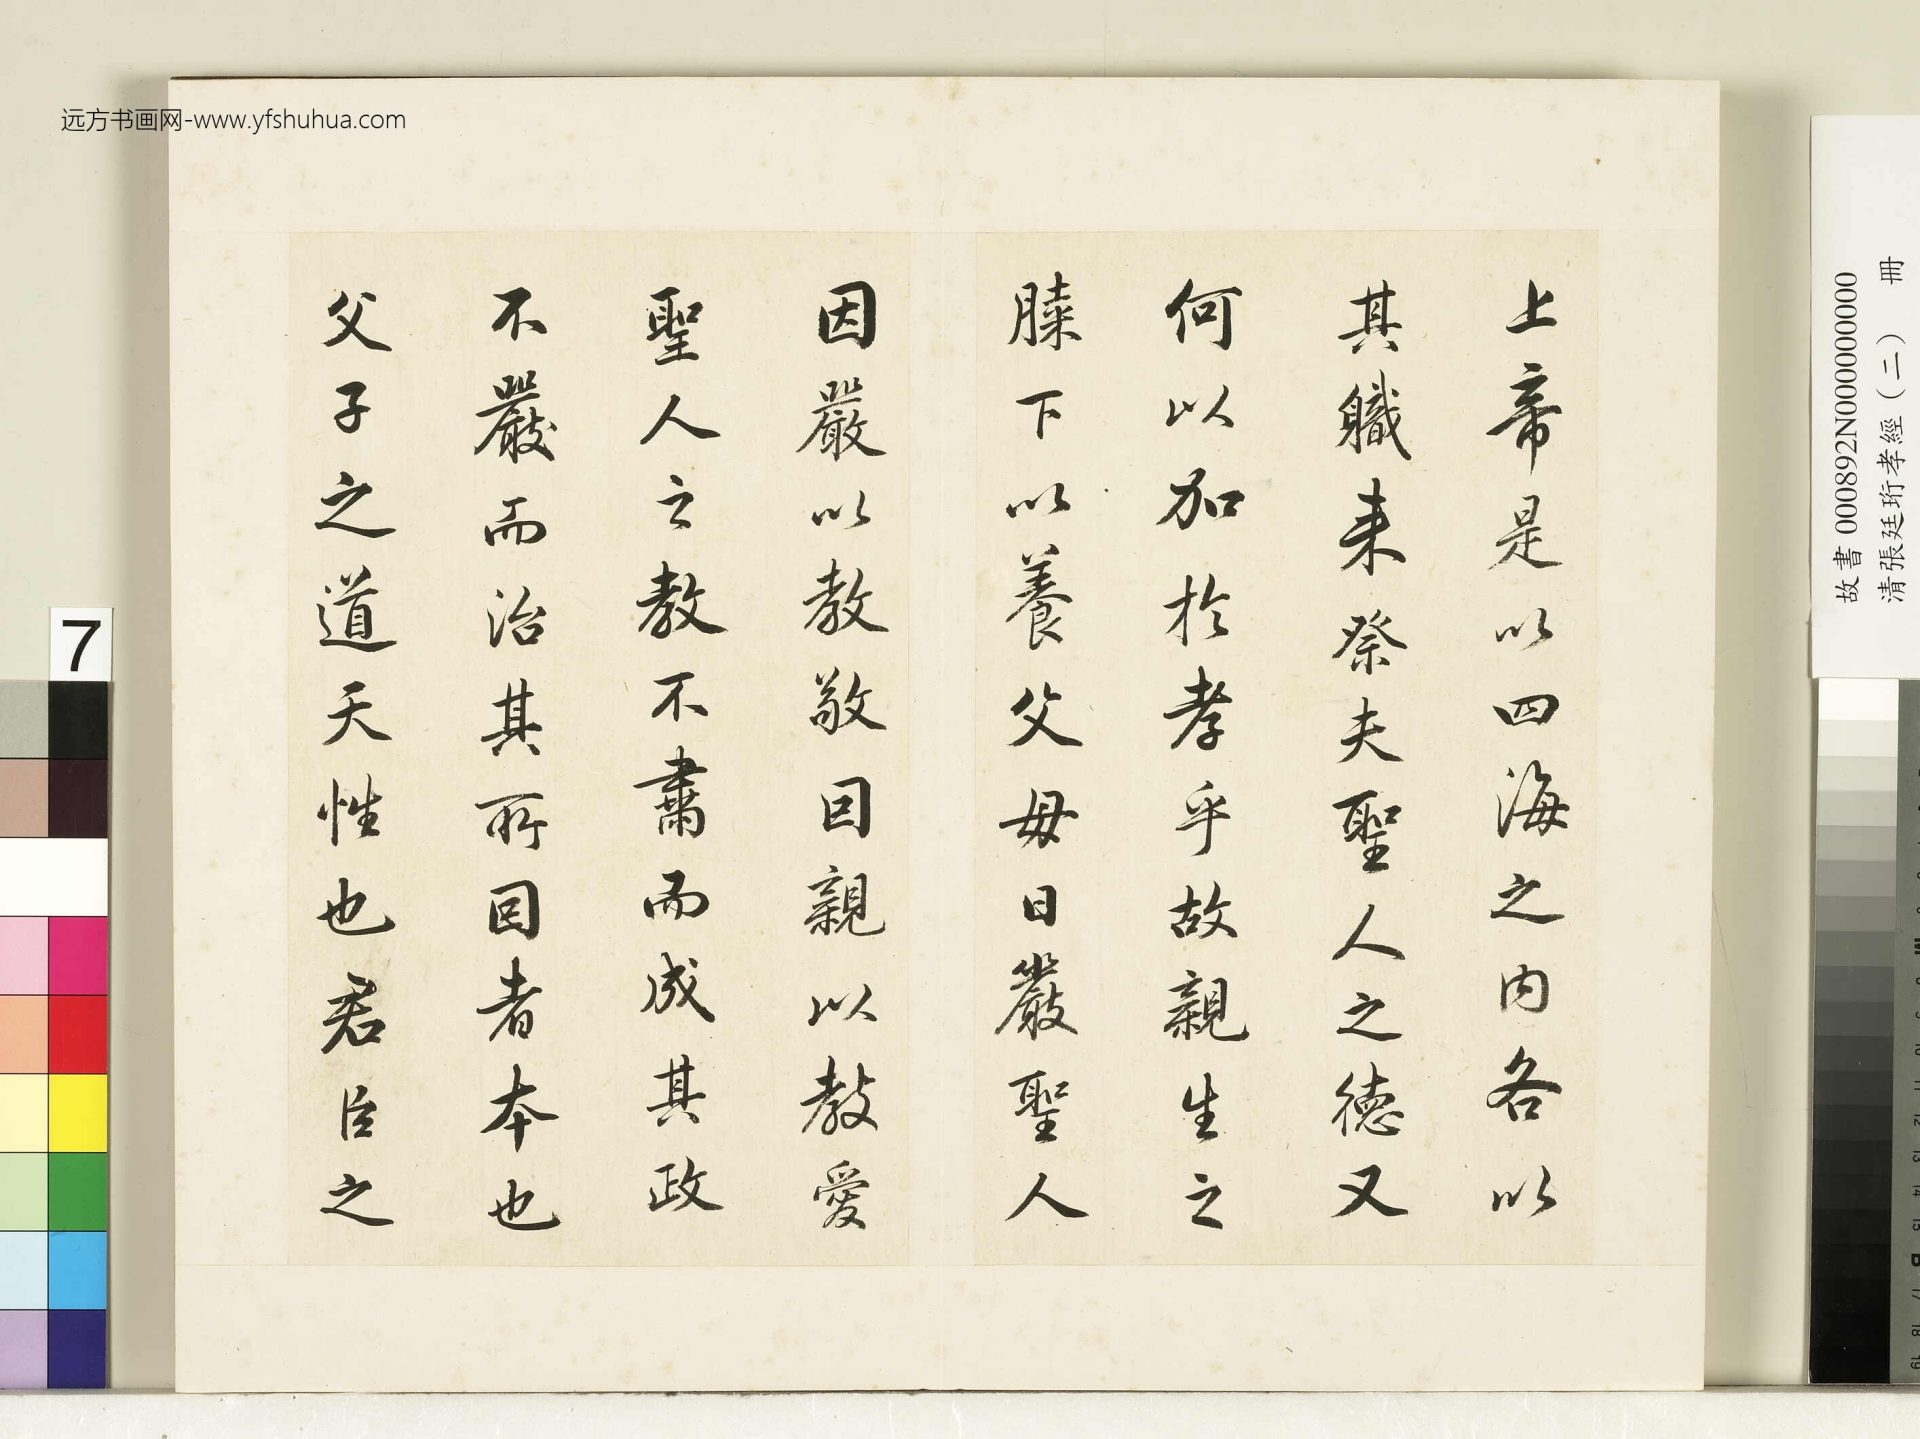 远方书画网-www.yfshuhua.com
上帝是以四海之内各以
其職来祭夫聖人之德又
何以加於孝乎故親生之
膝下以養父母日嚴聖人
因嚴以教敬因親以教愛
聖人之教不肅而成其政
不嚴而治其所因者本也
父子之道天性也君臣之
故書 000892N000000000
清張廷珩孝經（二） 冊
7